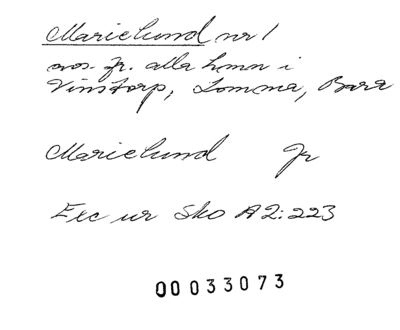 Marielund nr 1
avs. fr. alla hmn i
Vinstorp, Lomma, Bara
Marielund Jr
Exc ur Sko A2:223
00033073